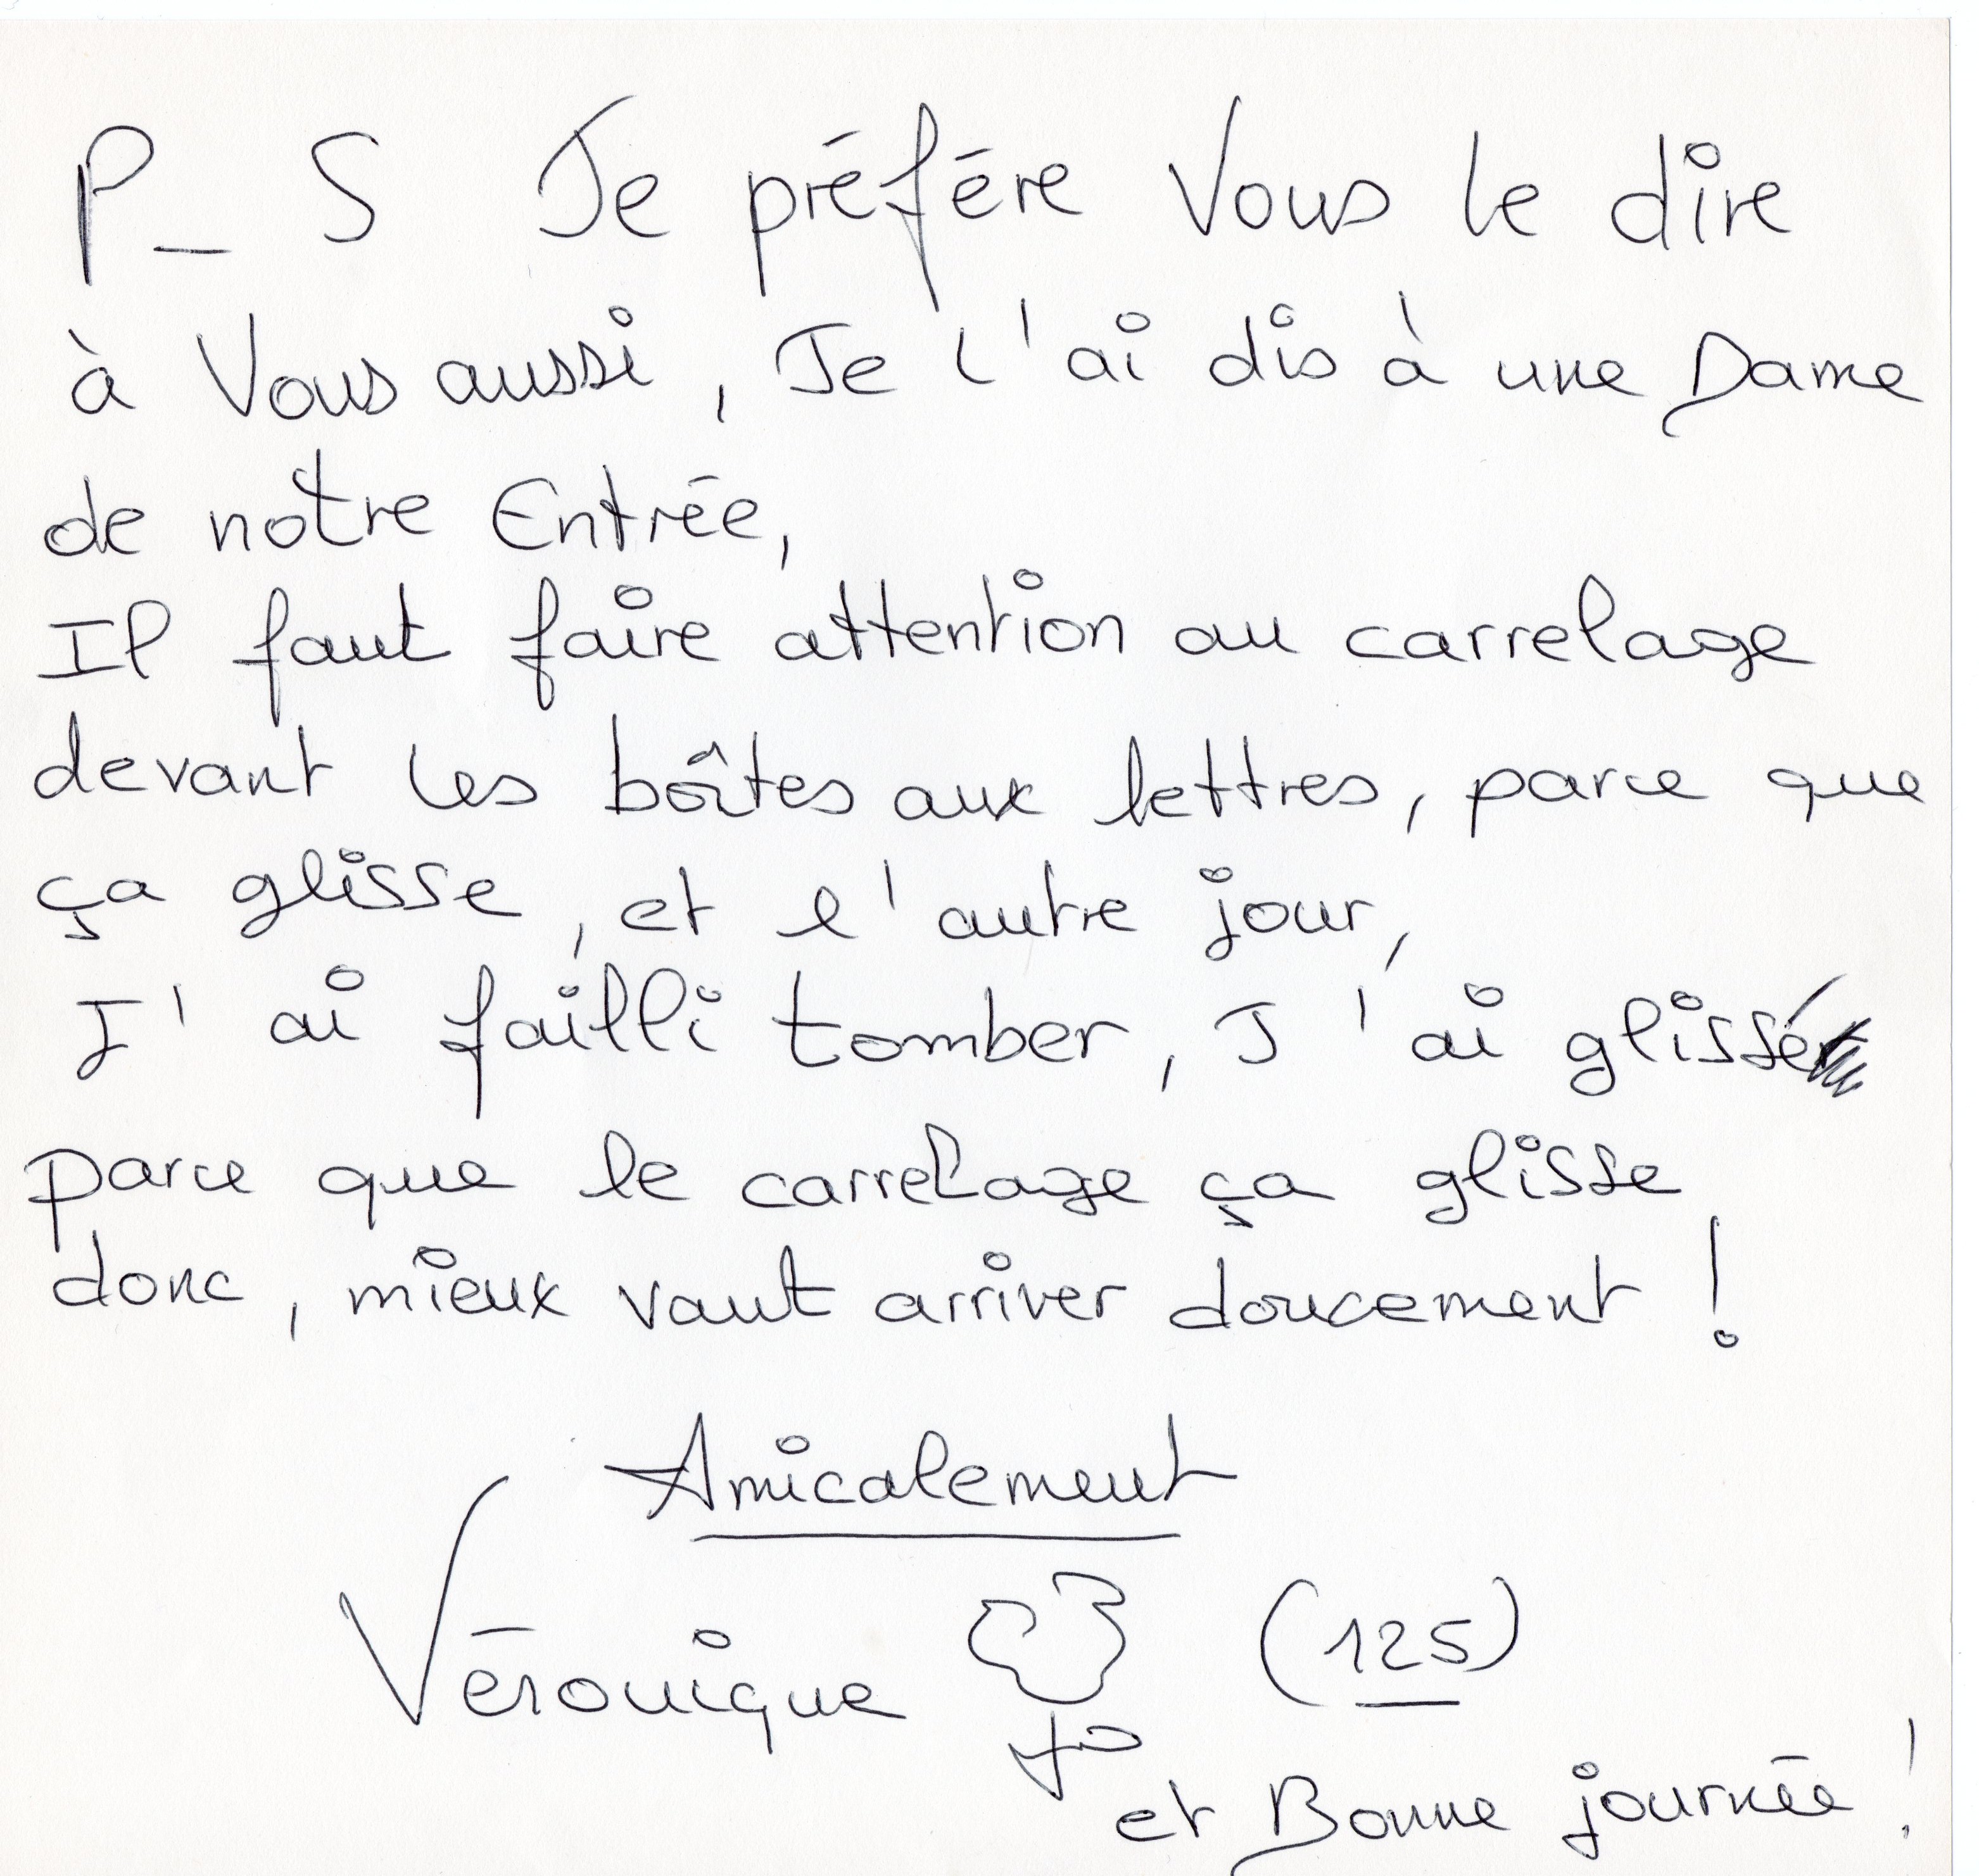 P_ S Je préfére Vous le dire
à Vous aussi, Je l'ai dis à une Dame
de notre Entrée,
Il faut faire attention au carrelage
devant les boîtes aux lettres, parce que
ça glisse, et l'autre jour,
J'ai failli tomber, J'ai glissé
parce que le carrelage ça glisse
donc, mieux vaut arriver doucement !
Amicalement
Véronique (125)
et Bonne journée !